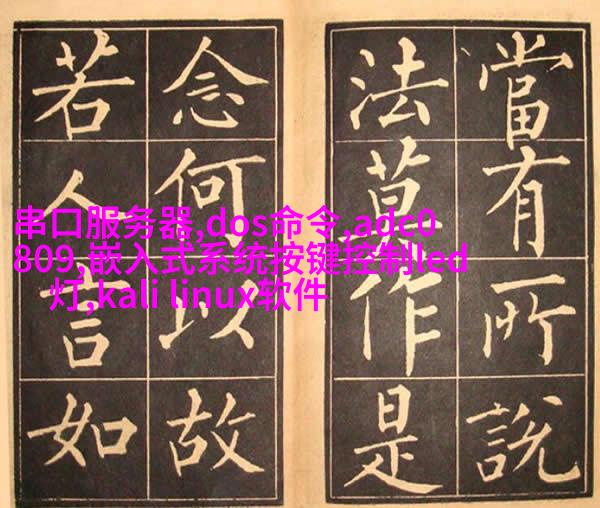 當有所說
法莫作是
念何以故
若人言如
串口服务器,dos命令,adc0
809,嵌入式系统按键控制led
灯,kali linux软件